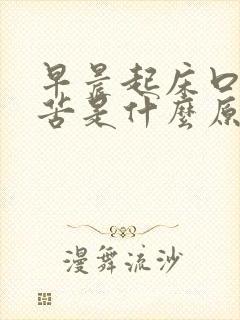 早晨起床口
苦是什麼原
漫舞流沙